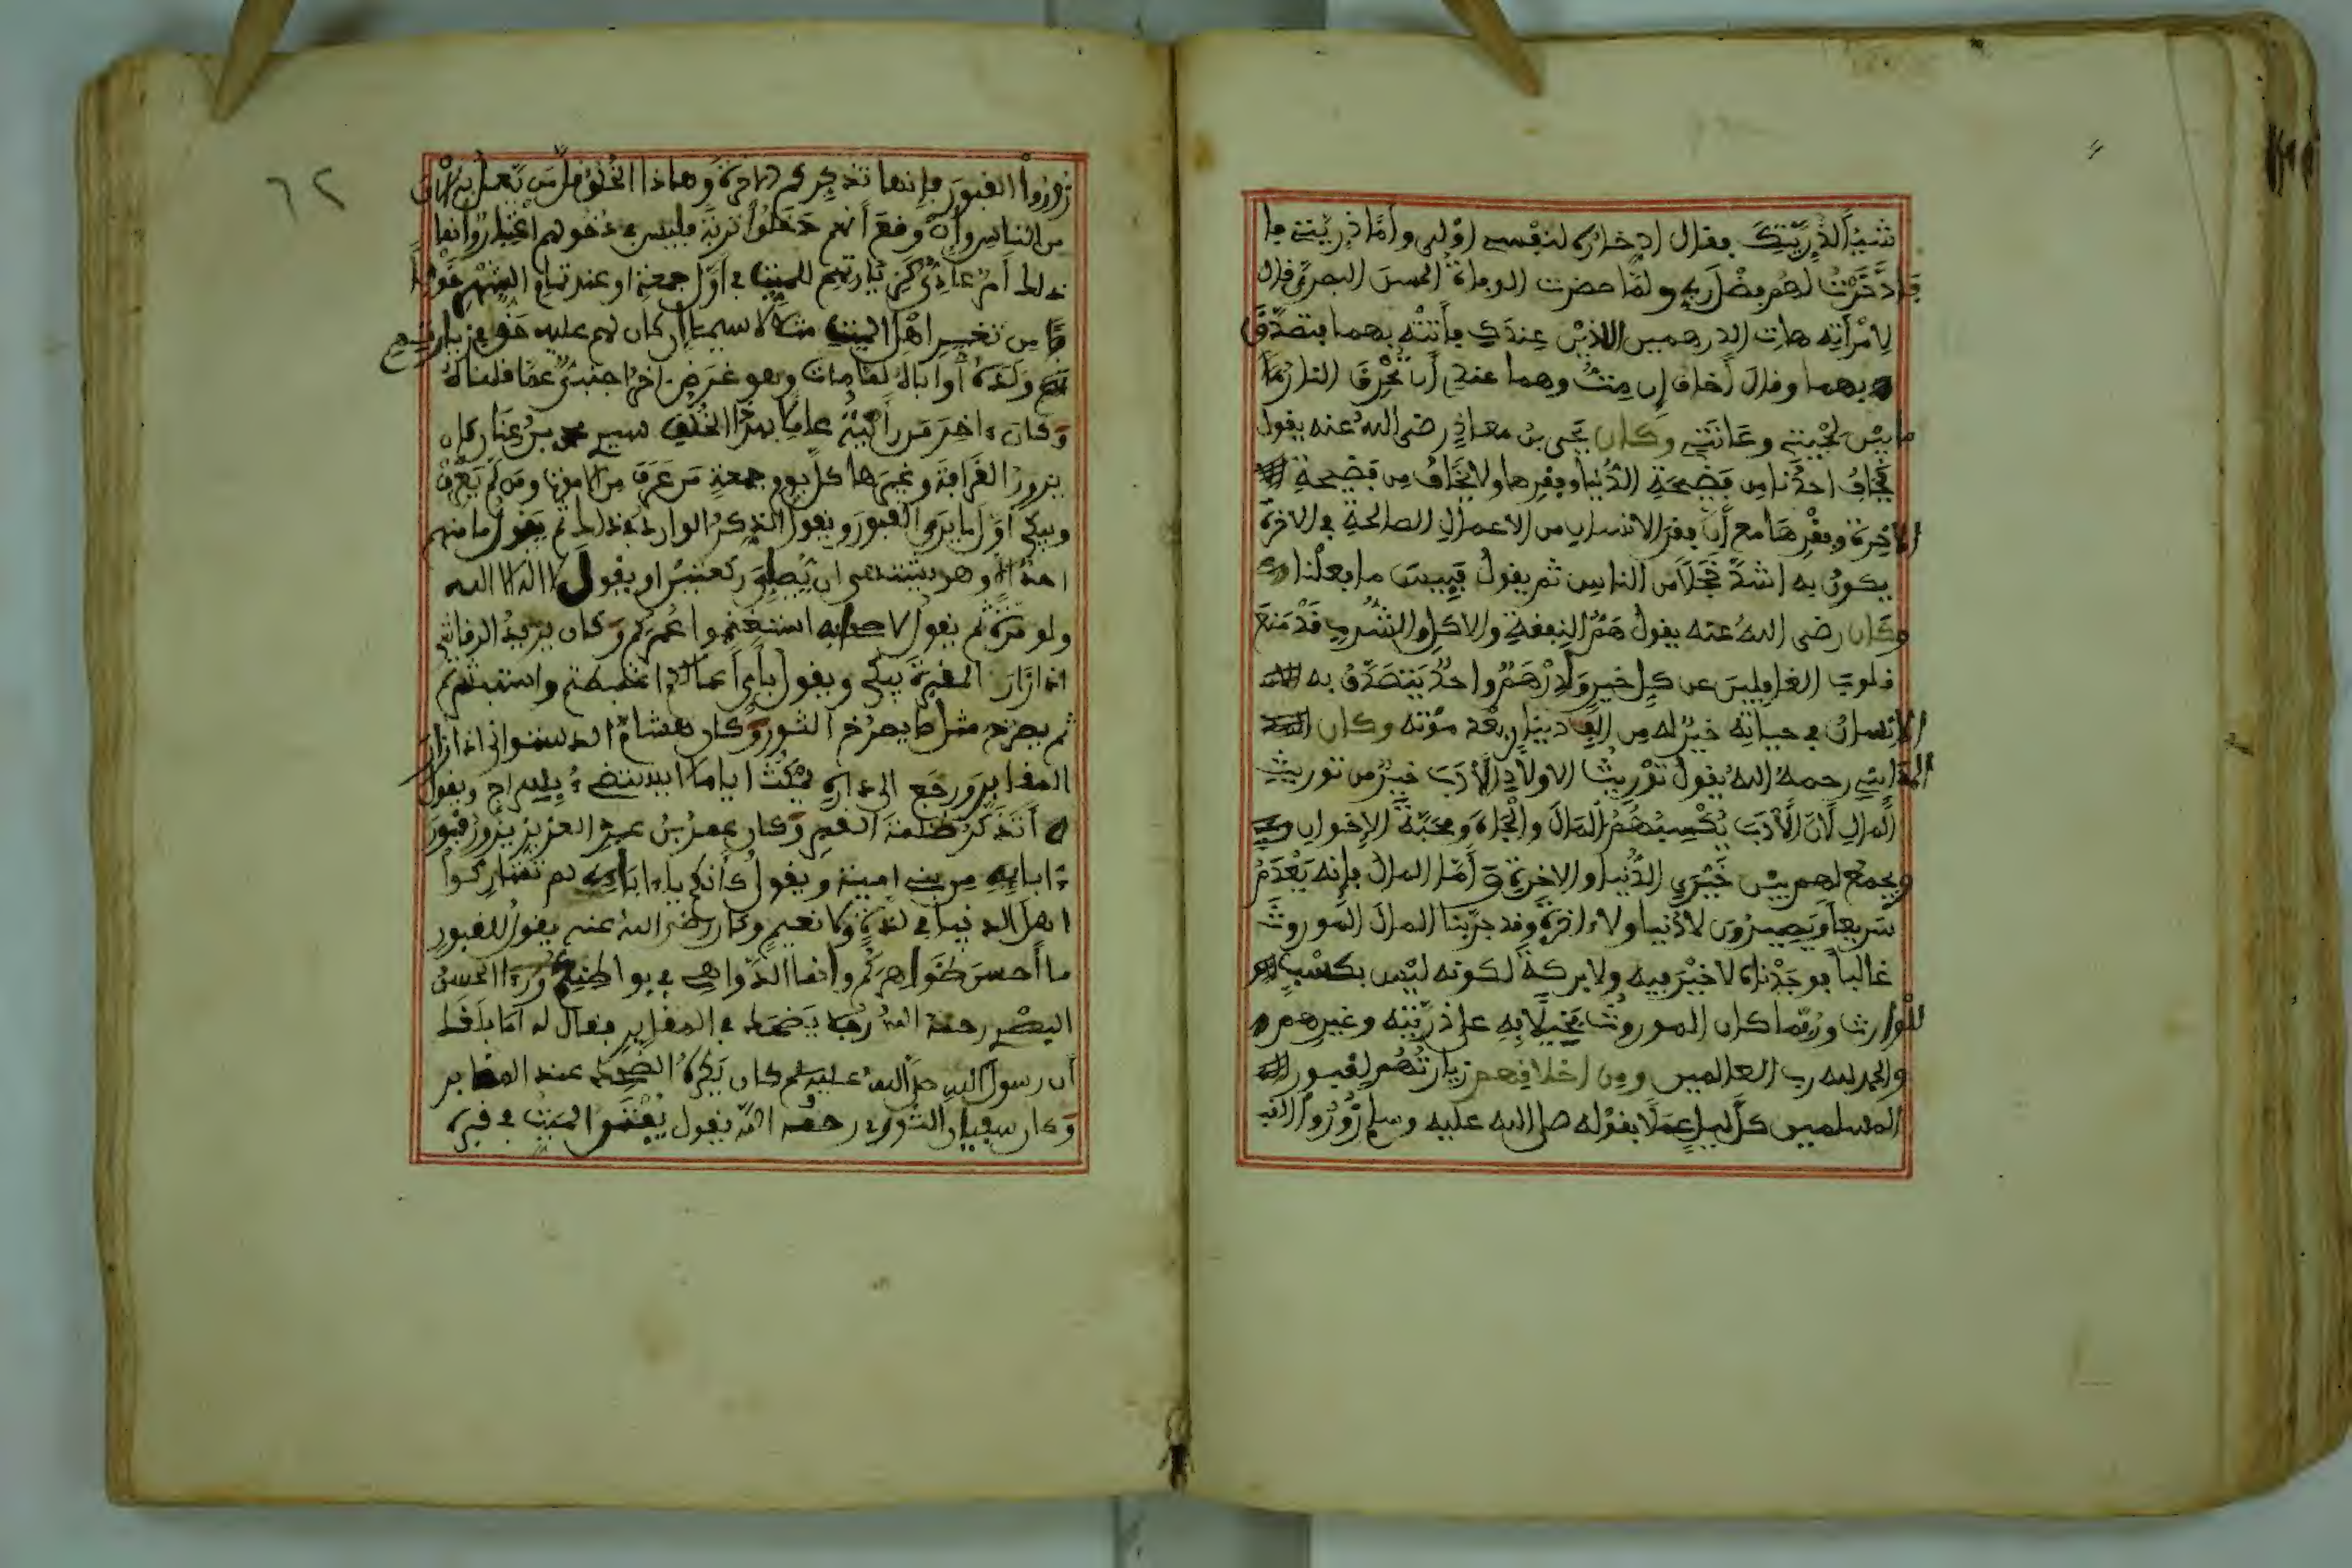 شيئا لذريتك فقال ادخاره لنفسي اولى واما ذريتي فا
قد ادخرت لهم فضل ربي ولما حضرت الوفاة الحسن البصري قال
لامرأته هات الدرهمين اللذين عندك فأتته بهما فتصدق
بهما وقال أخاف إن مت وهما عندي أن تحرق النار
ما بين لحيتي وعانتي وكان يحيى بن معاذ رضى الله عنه يقول
يخاف احدنا من فضيحة الدنيا وفقرها ولا يخاف من فضيحة
الاخرة وفقرها مع أن فقر الانسان من الاعمال الصالحة في الاخرة
يكون به اشد خجلا من الناس ثم يقول قبيت ما فعلنا
وكان رضى الله عنه يقول هم النفقة والاكل والشرب قد منع
قلوب الغافلين عن كل خير ولدرهم واحد يتصدق به
الانسان في حياته خير له من الف دينار بعد موته وكان
رحمه الله يقول توريث الاولاد الأدب خير من توريث
المال لأن الأدب يكسبهم المال والجاه ومحبة الإخوان
ويجمع لهم بين خيري الدنيا والاخرة وأما المال فإنه يعدم
سريعا ويصيرون لا دنيا ولا ءاخرة وقد جربنا المال الموروث
غالبا فوجدناه لا خير فيه ولا بركة لكونه ليس بكسب
للوارث وربما كان الموروث بخيلا به على ذريته وغيرهم
والحمد لله رب العالمين ومن اخلافهم زيارتهم لقبور
المسلمين كل ليل عملا بقوله صلى الله عليه وسلم زوروا
٦٢
زوروا القبور فإنها تذكركم الاخرة وهاذا الخلق قل من يعمل به الان
من الناس وإن وقع أنهم دخلوا تربة فليس في دخولهم اعتبار وإنما
ذلك أمر عادي كزيارتهم للميت في أول جمعة او عند تمام الشهر خوفا
من تغير اهل الميت مثلا لا سيما إن كان لهم عليه حق في زيارتهم
ولده أو اباه لما مات وهو غرض اخر اجنبي عما قلناه
وكان ءاخر من رأيته عاملا بهذا الخلق سيدي محمد بن عنان كان
يزور القرافة وغيرها كل يوم جمعة من عرف من الاموات ومن لم يعرف
ويبكي أول ما يرى القبور ويقول الذكر الوارد في ذلك ثم يقول ما منهم
احد إلا وهو يشتهي ان يصلي ركعتين او يقول لا اله الا الله
ولو مرة ثم يقول لاصحابه استغنموا عمركم وكان يزيد الرقاشي
اذا زار المقبرة يبكي ويقول بأي أعمالكم اغتبطتم واستبشرتم
ثم يصرخ مثل ما يصرخ الثور وكان هشام الدستواني اذا زار
المقابر ورجع الى داره يمكث اياما لا يستضيء بسراج ويقول
أتذكر ظلمة القبر وكان عمر بن عبد العزيز يزور قبور
ءابائه من بني امية ويقول كأنكم ياءابائي لم تشاركوا
اهل الدنيا في لذة ولا نعيم وكان رضي الله عنه يقول للقبور
ما أحسن ظواهركم وإنما الدواهي في بواطنكم ورءا الحسن
البصري رحمه الله رجلا يضحك في المقابر فقال له أما بلغك
أن رسول الله صلى الله عليه وسلم كان يكره الضحك عند المقابر
وكان سفيان الثوري رحمه الله يقول يغتنم الميت في قبره